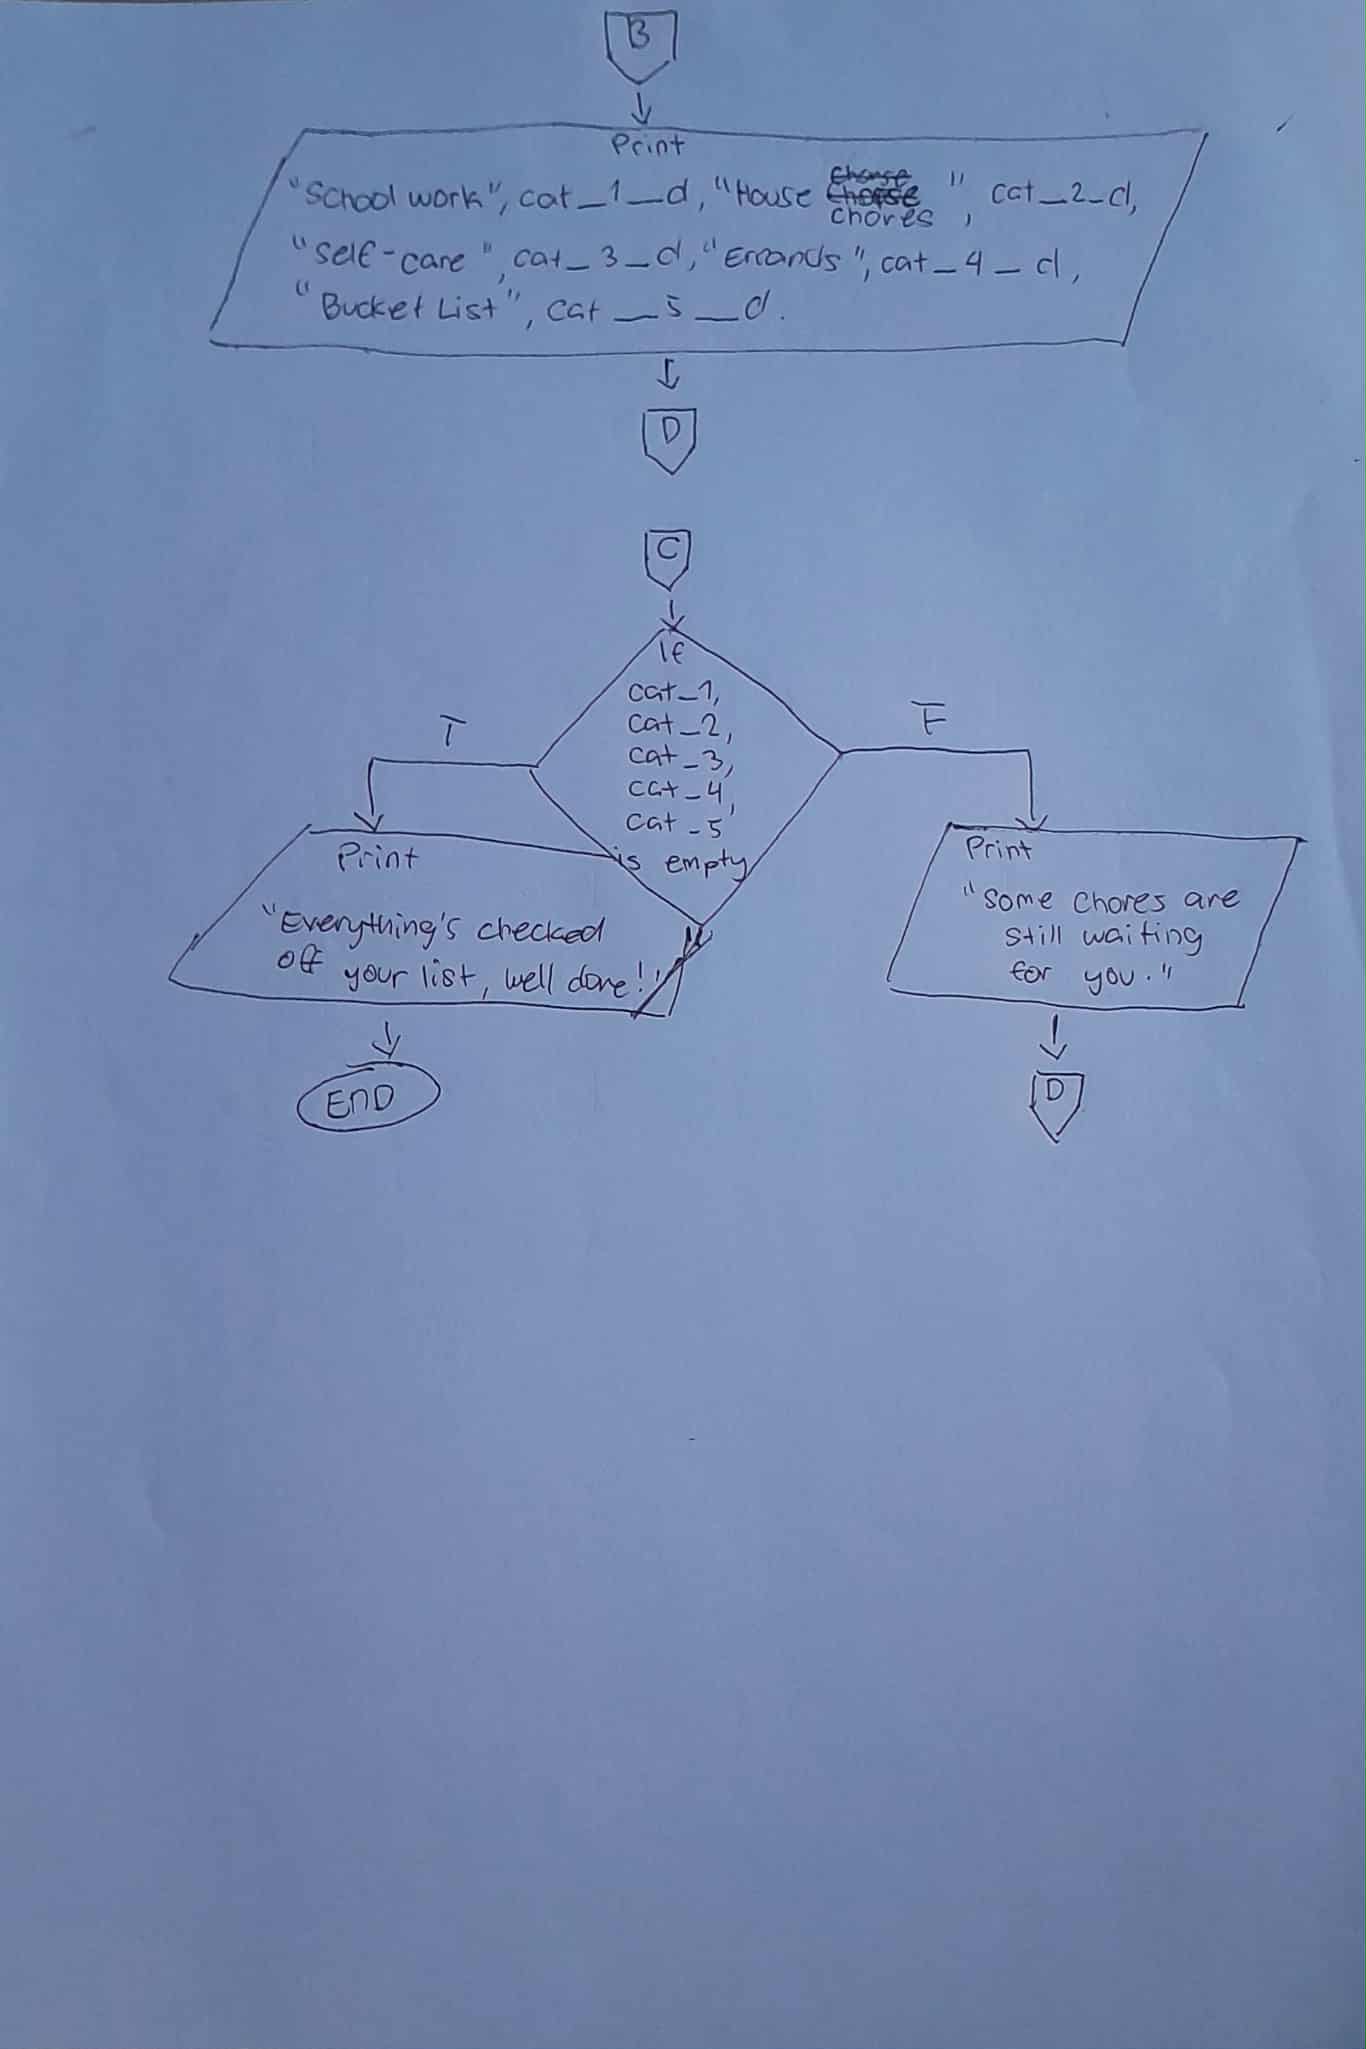 B
Print
"School work", cat_1_d, "House chores", cat_2_d,
"Self-care", cat_3_d, "Errands", cat_4_d,
"Bucket List", cat_5_d.
D
C
If
cat_1,
cat_2,
cat_3,
cat_4,
cat_5
is empty
T
F
Print
"Everything's checked
off your list, well done!"
END
Print
"Some chores are
still waiting
for you."
D